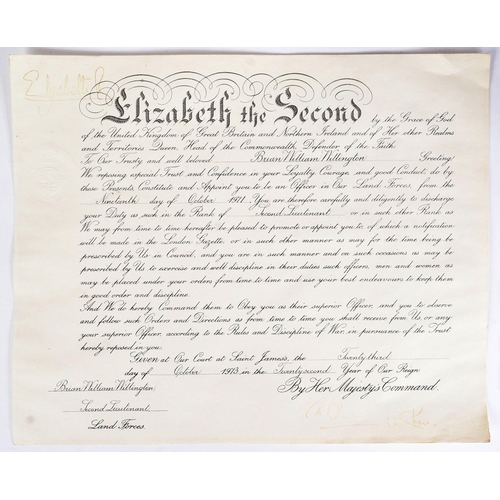 Elizabeth R
Elizabeth the Second by the Grace of God
of the United Kingdom of Great Britain and Northern Ireland and of Her other Realms
and Territories Queen, Head of the Commonwealth, Defender of the Faith.
To Our Trusty and well beloved Brian William Willington Greeting!
We reposing especial Trust and Confidence in your Loyalty Courage and good Conduct, do by
these Presents, Constitute and Appoint you to be an Officer in Our Land Forces, from the
Nineteenth day of October 1971. You are therefore carefully and diligently to discharge
your Duty as such in the Rank of Second Lieutenant or in such other Rank as
We may from time to time hereafter be pleased to promote or appoint you to, of which a notification
will be made in the London Gazette, or in such other manner as may for the time being be
prescribed by Us in Council, and you are in such manner and on such occasions as may be
prescribed by Us to exercise and well discipline in their duties such officers, men and women as
may be placed under your orders from time to time and use your best endeavours to keep them
in good order and discipline.
And We do hereby Command them to Obey you as their superior Officer, and you to observe
and follow such Orders and Directions as from time to time you shall receive from Us, or any
your superior Officer, according to the Rules and Discipline of War, in pursuance of the Trust
hereby reposed in you.
Given at Our Court at Saint James's, the Twenty third
day of October 1973, in the Twenty second Year of Our Reign
Brian William Willington By Her Majesty's Command.
Second Lieutenant
Land Forces.